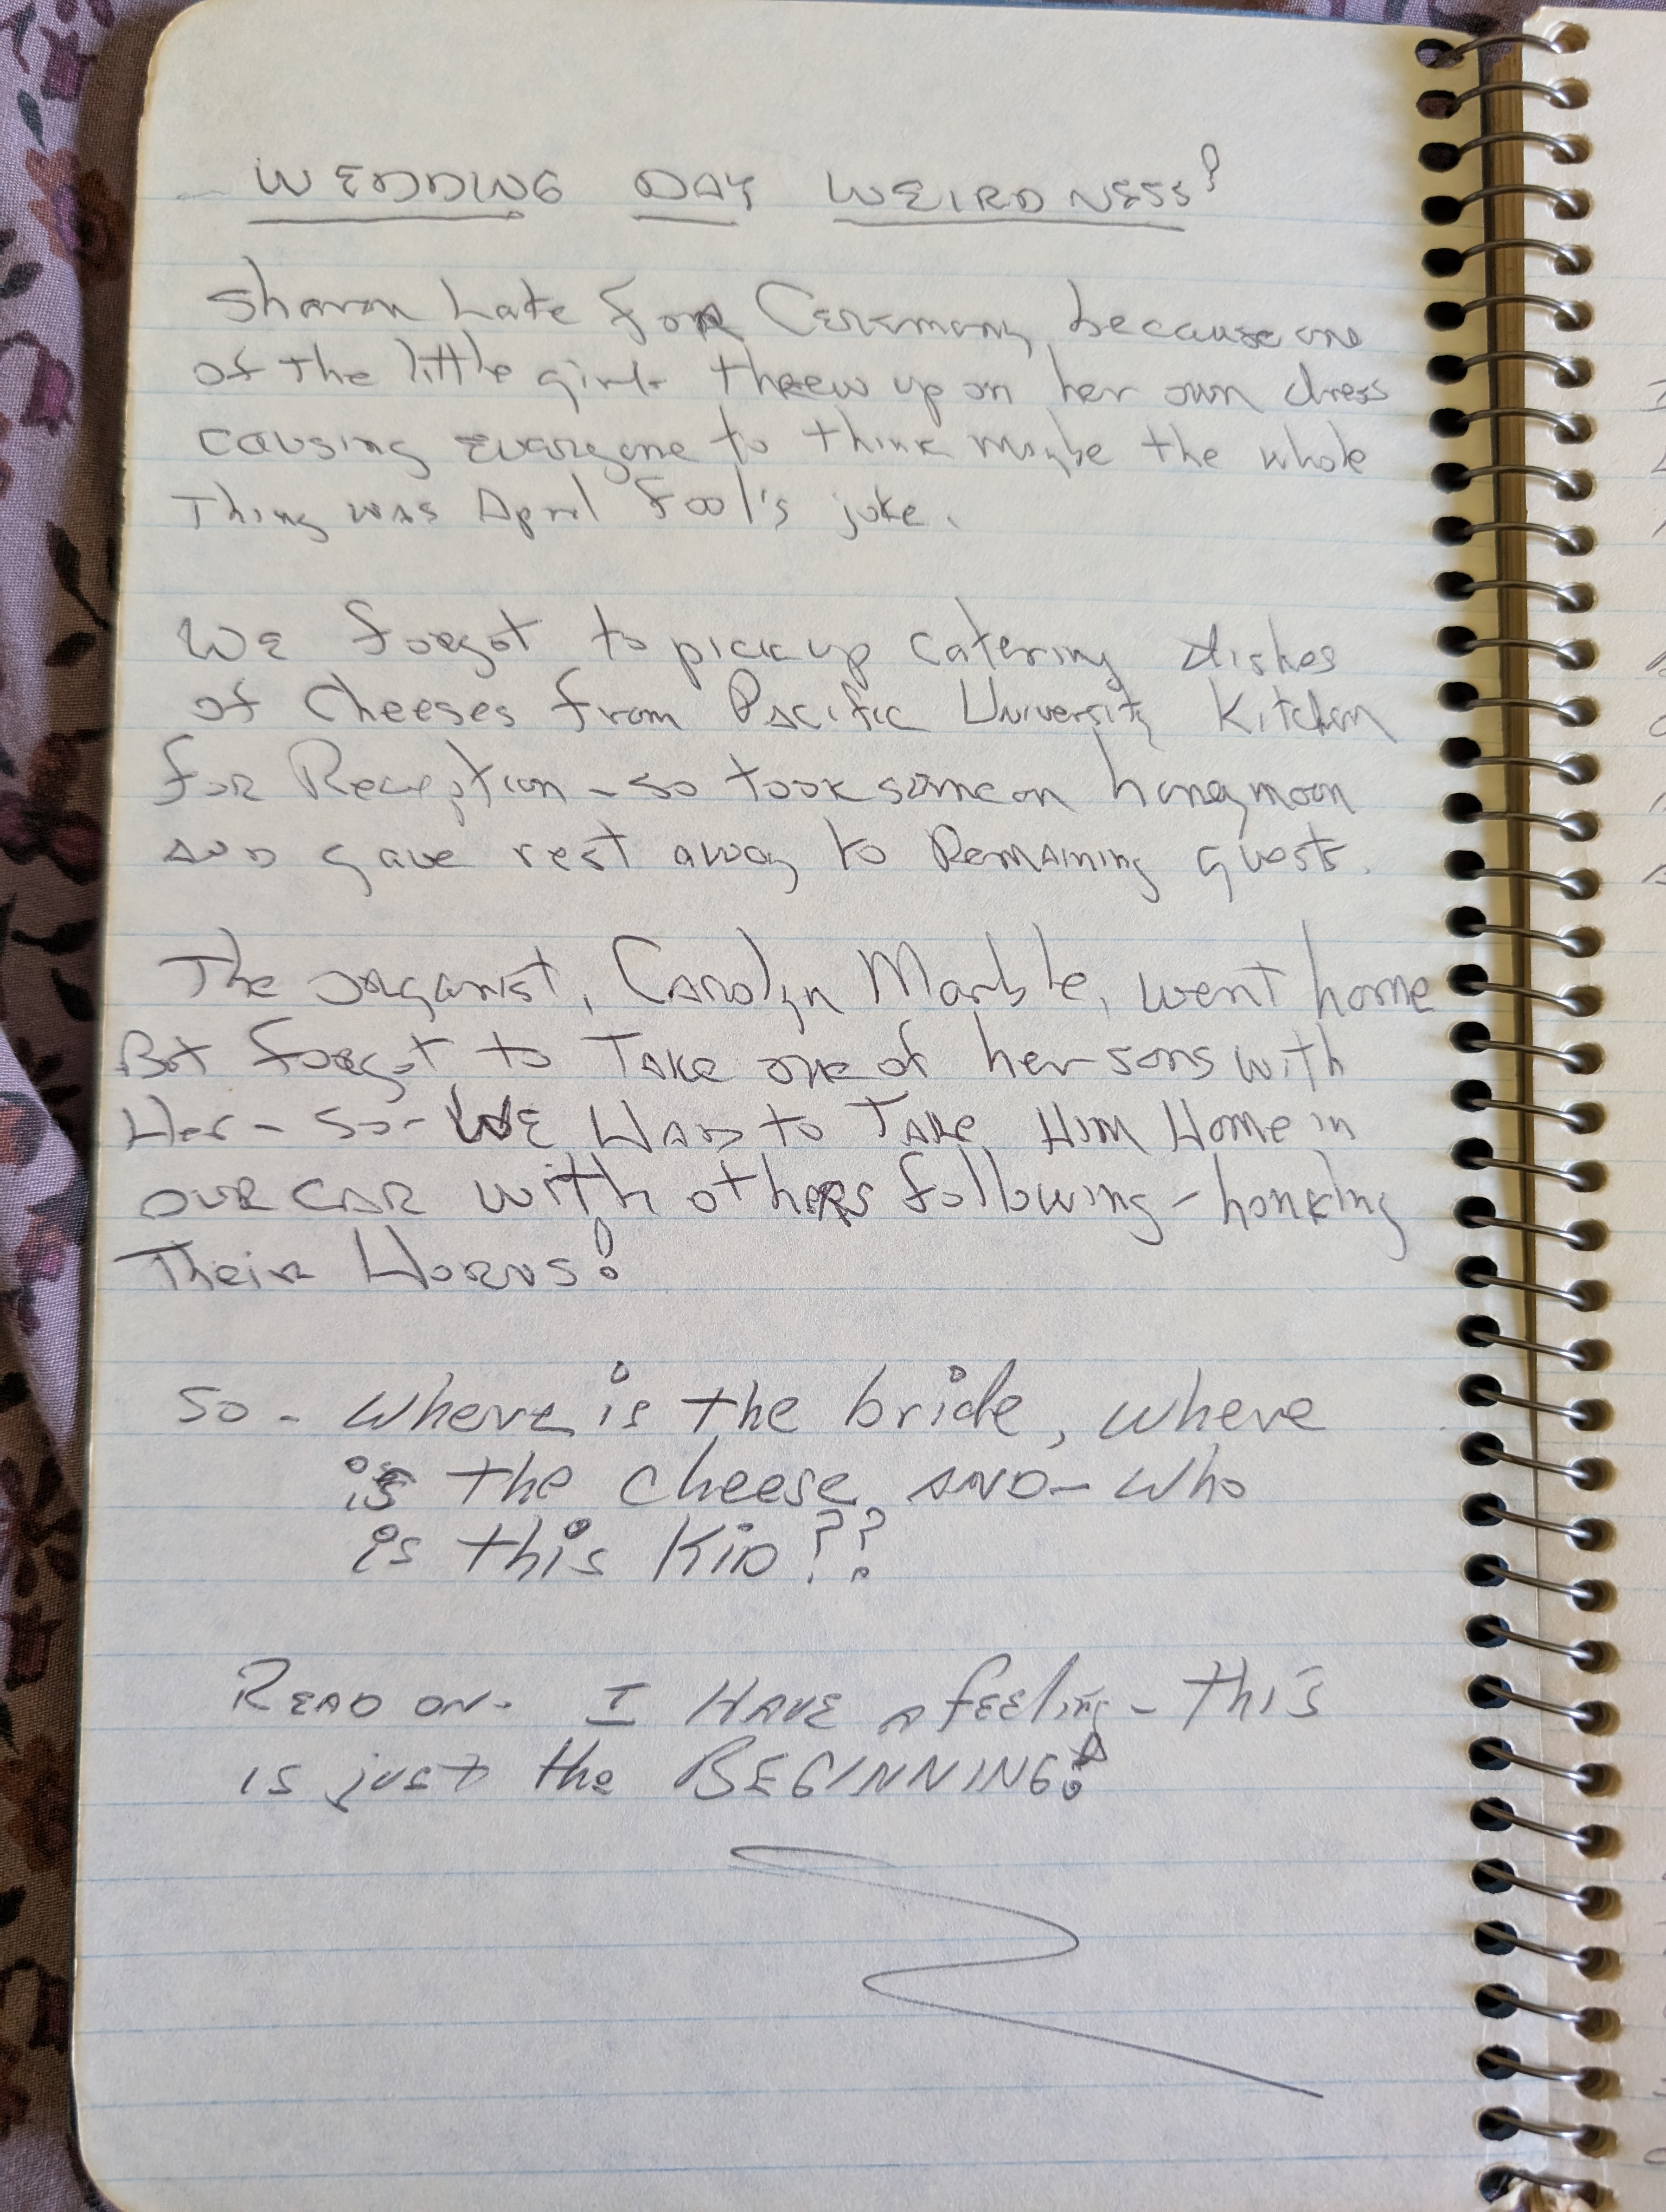 WEDDING DAY WEIRDNESS!
Sharon Late FOR Ceremony because one
of the little girls threw up on her own dress
causing EVERYone to think maybe the whole
Thing was April Fool's joke.
WE forgot to pick up catering dishes
of Cheeses from Pacific University Kitchen
for Reception - so took some on honeymoon
AND gave rest away to Remaining guests.
The organist, Carolyn Marble, went home
But forgot to Take one of her sons with
Her - So - WE HAD to TAKE HIM HOME in
OUR CAR with others following - honking
Their HORNS!
SO - where is the bride, where
is the cheese, AND - who
is this KID??
READ ON - I HAVE A feeling - this
is just the BEGINNING!